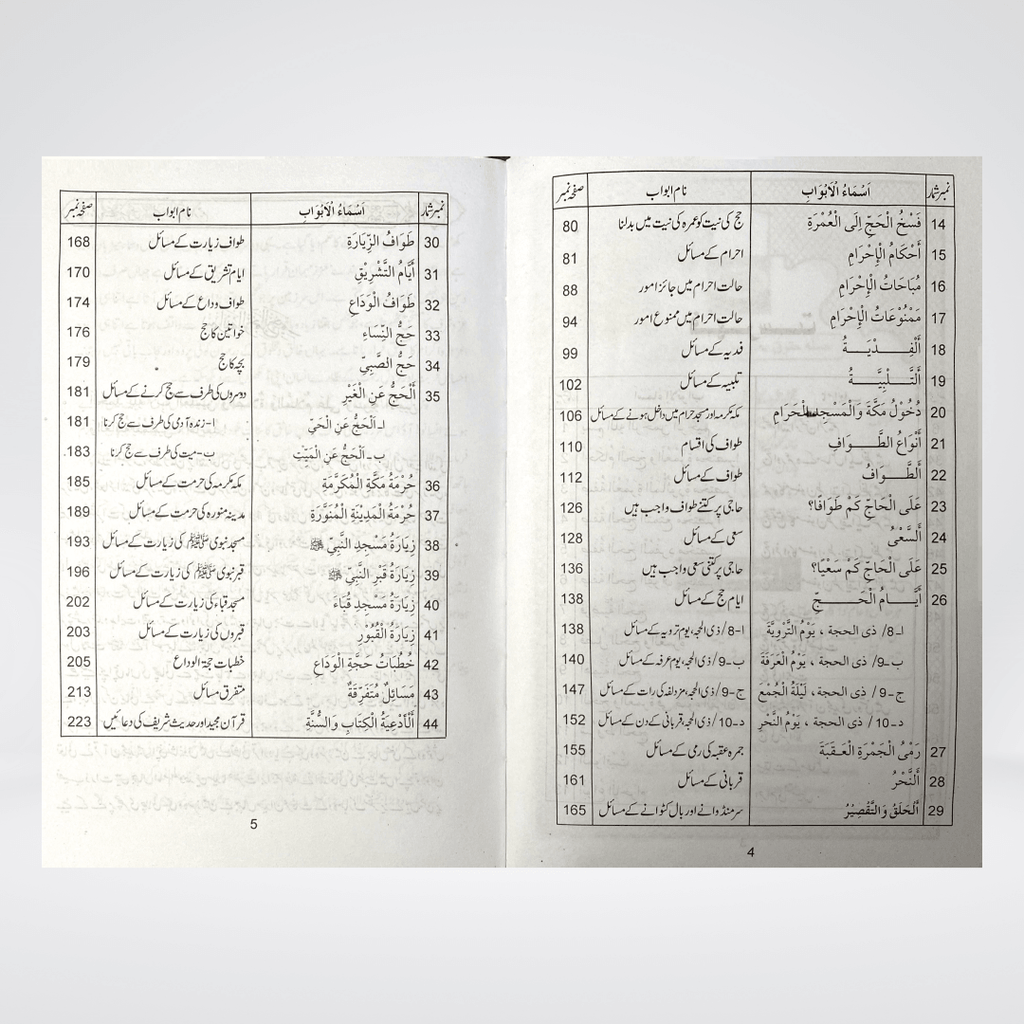 نمبر شمار اَسْمَاءُ الْاَبْوَابِ نام ابواب صفحہ نمبر
14 فَسْخُ الْحَجِّ إِلَى الْعُمْرَةِ حج کی نیت کو عمرہ کی نیت میں بدلنا 80
15 أَحْكَامُ الْإِحْرَامِ احرام کے مسائل 81
16 مُبَاحَاتُ الْإِحْرَامِ حالت احرام میں جائز امور 88
17 مَمْنُوعَاتُ الْإِحْرَامِ حالت احرام میں ممنوع امور 94
18 أَلْفِدْيَةُ فدیہ کے مسائل 99
19 أَلتَّلْبِيَّةُ تلبیہ کے مسائل 102
20 دُخُوْلُ مَكَّةَ وَالْمَسْجِدِ الْحَرَامِ مکہ مکرمہ اور مسجد حرام میں داخل ہونے کے مسائل 106
21 أَنْوَاعُ الطَّوَافِ طواف کی اقسام 110
22 أَلطَّوَافُ طواف کے مسائل 112
23 عَلَى الْحَاجِّ كَمْ طَوَافًا؟ حاجی پر کتنے طواف واجب ہیں 126
24 أَلسَّعْىُ سعی کے مسائل 128
25 عَلَى الْحَاجِّ كَمْ سَعْيًا؟ حاجی پر کتنی سعی واجب ہیں 136
26 أَيَّامُ الْحَجِّ ایام حج کے مسائل 138
ا۔ 8/ ذی الحجة ، يَوْمُ التَّرْوِيَّةَ ا-8/ ذی الحجہ، یوم ترویہ کے مسائل 138
ب-9/ ذی الحجة ، يَوْمُ الْعَرَفَةَ ب-9/ ذی الحجہ، یوم عرفہ کے مسائل 140
ج-9/ ذی الحجة، لَيْلَةُ الْجُمْعَ ج-9/ ذی الحجہ، مزدلفہ کی رات کے مسائل 147
د-10/ ذی الحجة ، يَوْمُ النَّحْرِ د-10/ ذی الحجہ، قربانی کے دن کے مسائل 152
27 رَمْىُ الْجَمْرَةِ الْعَقَبَةَ جمرہ عقبہ کی رمی کے مسائل 155
28 أَلنَّحْرُ قربانی کے مسائل 161
29 أَلْحَلَقُ وَالتَّقْصِيْرُ سر منڈوانے اور بال کٹوانے کے مسائل 165
4
نمبر شمار اَسْمَاءُ الْاَبْوَابِ نام ابواب صفحہ نمبر
30 طَوَافُ الزِّيَارَةِ طواف زیارت کے مسائل 168
31 أَيَّامُ التَّشْرِيْقِ ایام تشریق کے مسائل 170
32 طَوَافُ الْوَدَاعِ طواف وداع کے مسائل 174
33 حَجُّ النِّسَاءِ خواتین کا حج 176
34 حَجُّ الصَّبِيِّ بچہ کا حج 179
35 أَلْحَجُّ عَنِ الْغَيْرِ دوسروں کی طرف سے حج کرنے کے مسائل 181
ا۔ اَلْحَجُّ عَنِ الْحَيِّ ا-زندہ آدمی کی طرف سے حج کرنا 181
ب- اَلْحَجُّ عَنِ الْمَيِّتِ ب-میت کی طرف سے حج کرنا 183
36 حُرْمَةُ مَكَّةِ الْمُكَرَّمَةِ مکہ مکرمہ کی حرمت کے مسائل 185
37 حُرْمَةُ الْمَدِيْنَةِ الْمُنَوَّرَةِ مدینہ منورہ کی حرمت کے مسائل 189
38 زِيَارَةُ مَسْجِدِ النَّبِيِّ ﷺ مسجد نبوی ﷺ کی زیارت کے مسائل 193
39 زِيَارَةُ قَبْرِ النَّبِيِّ ﷺ قبر نبوی ﷺ کی زیارت کے مسائل 196
40 زِيَارَةُ مَسْجِدِ قُبَاءَ مسجد قباء کی زیارت کے مسائل 202
41 زِيَارَةُ الْقُبُوْرِ قبروں کی زیارت کے مسائل 203
42 خُطْبَاتُ حَجَّةِ الْوَدَاعِ خطبات حجۃ الوداع 205
43 مَسَائِلٌ مُتَفَرِّقَةٌ متفرق مسائل 213
44 أَلْأَدْعِيَةُ الْكِتَابِ وَالسُّنَّةِ قرآن مجید اور حدیث شریف کی دعائیں 223
5